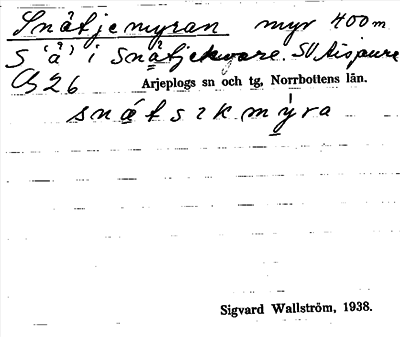 Snåtjemyran myr 400 m
S 'å' i Snåtjekware. SV Aispaure
Cb 26
Arjeplogs sn och tg, Norrbottens län.
snátsɩkmýra
Sigvard Wallström, 1938.